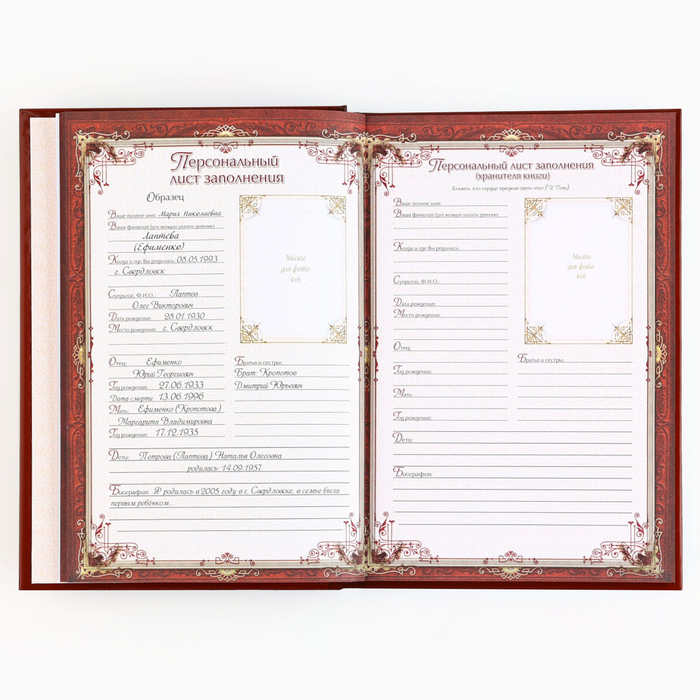 Персональный
лист заполнения
Образец
Ваше полное имя: Мария Николаевна
Ваша фамилия (для женщин указать девичью)
Лаптева
(Ефименко)
Когда и где Вы родились: 08.05.1993
г. Свердловск
Супруг(а, Ф.И.О.: Лаптов
Олег Викторович
Дата рождения: 28.01.1930
Место рождения: г. Свердловск
Место
для фото
4х6
Отец: Ефименко
Юрий Георгиевич
Год рождения: 27.06.1933
Дата смерти: 13.06.1996
Мать: Ефименко (Кропотова)
Маргарита Владимировна
Год рождения: 17.12.1935
Братья и сестры:
Брат: Кропотов
Дмитрий Юрьевич
Дети: Петрова (Лаптова) Наталья Олеговна
родилась: 14.09.1957
Биография: Я родилась в 2005 году в г. Свердловске, в семье была
первым ребёнком...
Персональный лист заполнения
(хранителя книги)
Блажен, кто сердце предков свято чтит (И. Гёте)
Ваше полное имя:
Ваша фамилия (для женщин указать девичью)
Когда и где Вы родились:
Супруг(а, Ф.И.О.:
Дата рождения:
Место рождения:
Место
для фото
4х6
Отец:
Год рождения:
Мать:
Год рождения:
Братья и сестры:
Дети:
Биография: